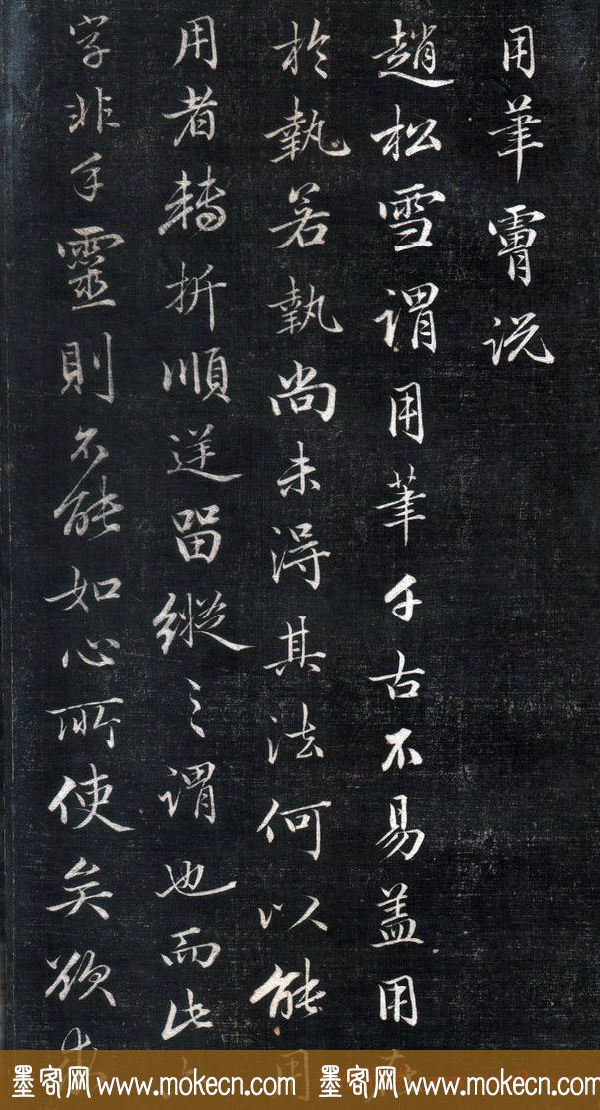 用筆膚说
趙松雪谓用筆千古不易盖用在
於執若執尚未得其法何以能用
用者轉折順逆留縱之谓也而此六
字非手靈則不能如心所使矣欲求
墨客网 www.mokecn.com 墨客网 www.mokecn.com